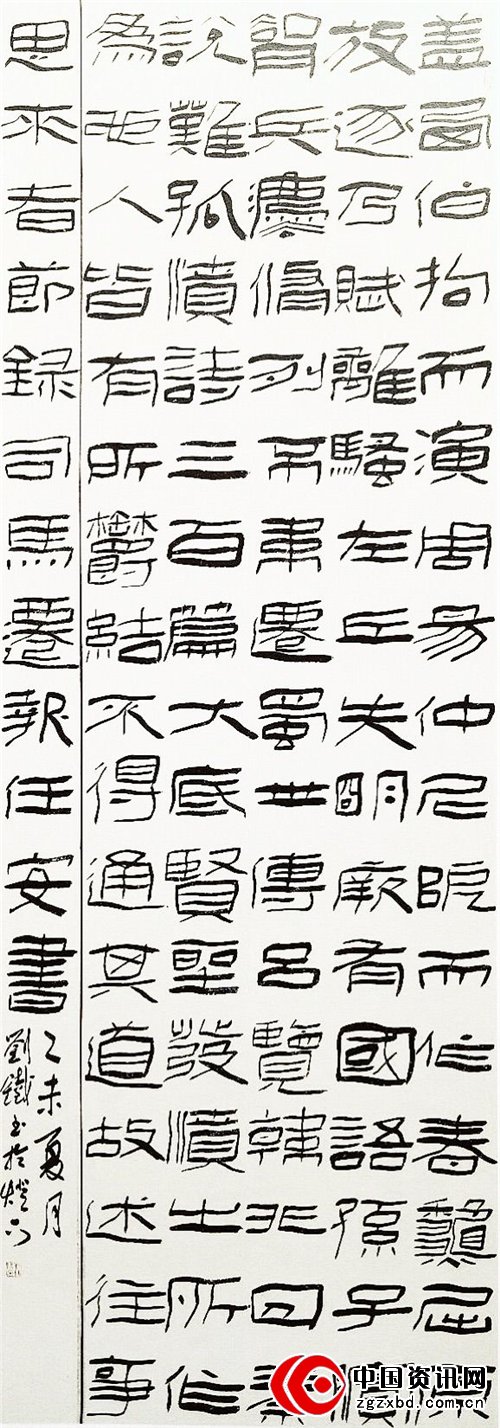 蓋西伯拘而演周易仲尼阨而作春龝屈
放逐乃賦離騷左丘失明厥有國語孫子臏
脚兵灋脩列不韋遷蜀世傳呂覽韓非囚秦
說難孤憤詩三百篇大底賢聖發憤之所作
為也人皆有所鬱結不得通其道故述往事
思来者節録司馬遷報任安書
乙未夏月
劉鐵書於燈下
中国资讯网
zgzxbd.com.cn